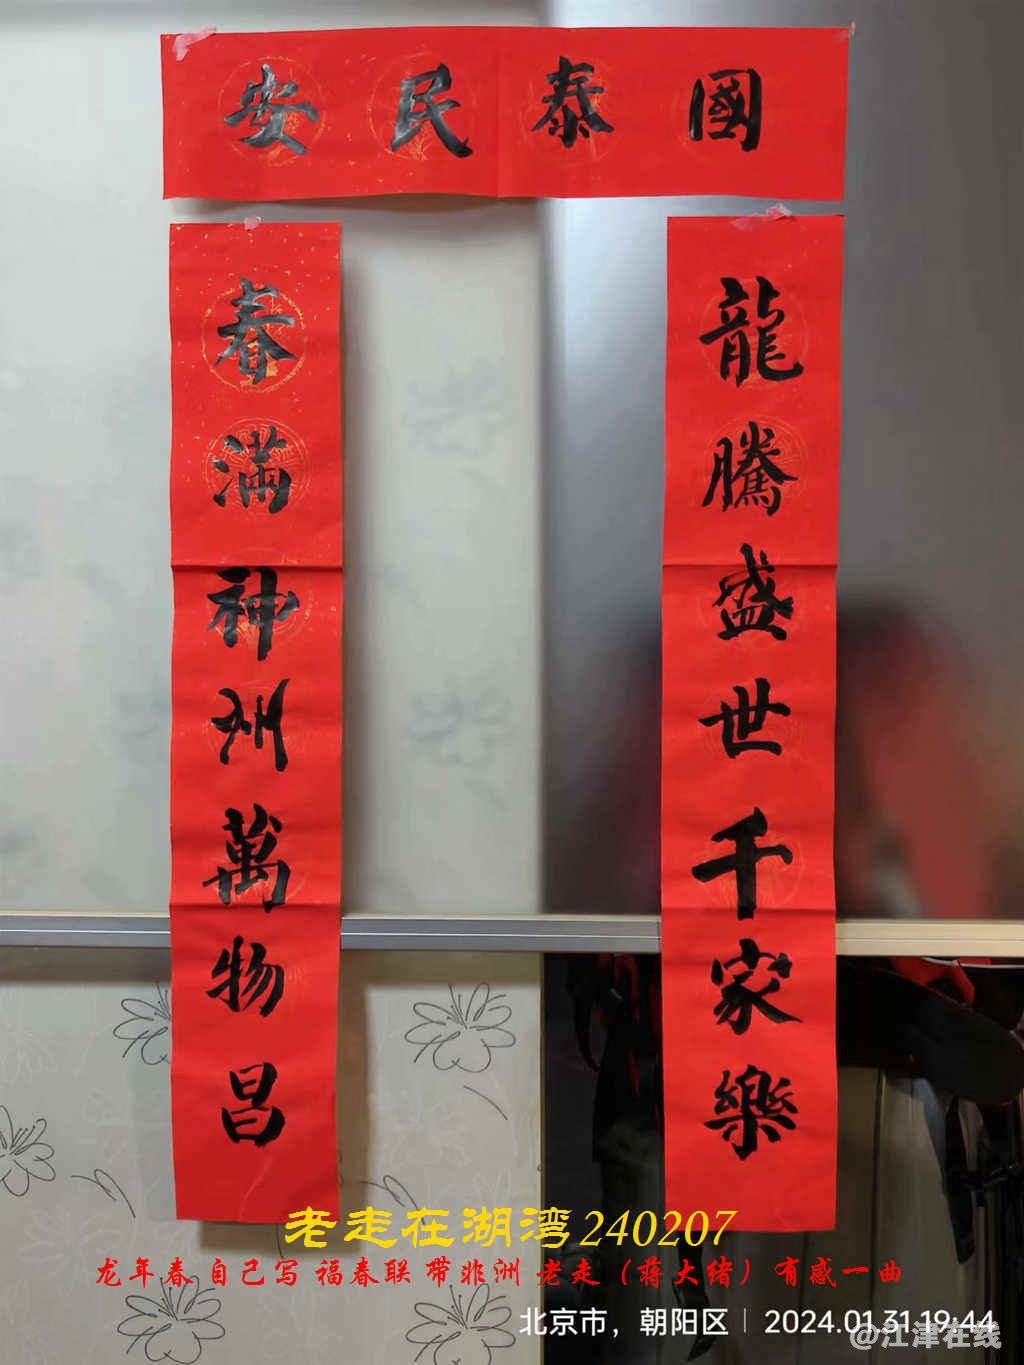 國泰民安
龍騰盛世千家樂
春滿神州萬物昌
老走在湖湾240207
龙年春 自己写 福春联 带非洲 老走（蒋大绪）有感一曲
北京市，朝阳区 | 2024.01.31 19:44
@江津在线